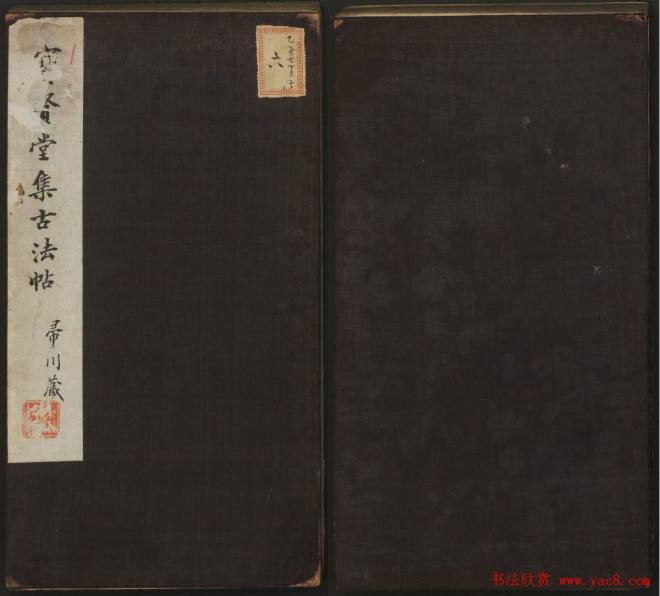 寶賢堂集古法帖
帚川藏
六
书法欣赏 www.yac8.com